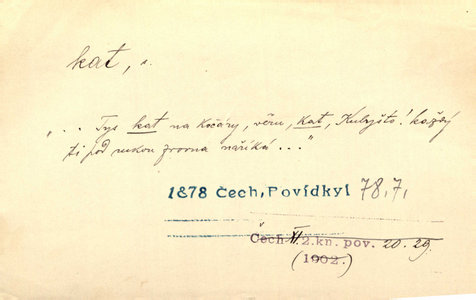 kat, s.
„ . . Tys kat na kočáry, věru, kat, Kubyšto! každý
ti pod rukou zrovna naříká . . .“
1878 Čech, Povídky I 78.7.
Čech XI 2. kn. pov. 20.29.
(1902.)